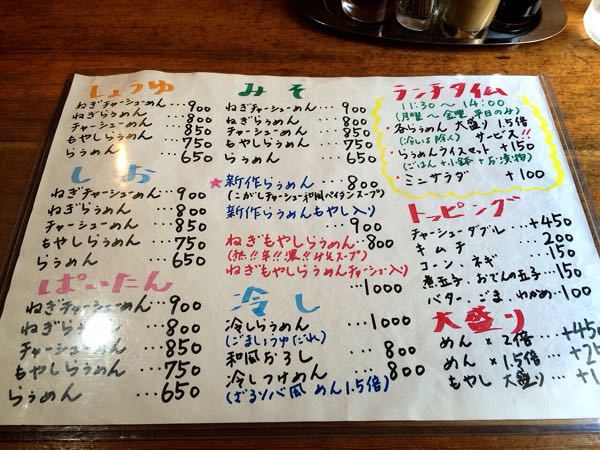 しょうゆ
ねぎチャーシューめん…900
ねぎらうめん…800
チャーシューめん…850
もやしらうめん…750
らうめん…650
しお
ねぎチャーシューめん…900
ねぎらうめん…800
チャーシューめん…850
もやしらうめん…750
らうめん…650
ぱいたん
ねぎチャーシューめん…900
ねぎらうめん…800
チャーシューめん…850
もやしらうめん…750
らうめん…650
みそ
ねぎチャーシューめん…900
ねぎらうめん…800
チャーシューめん…850
もやしらうめん…750
らうめん…650
★新作らうめん…800
(こがしチャーシュー和風パイタンスープ)
新作らうめんもやし入り
900
ねぎもやしらうめん…800
(熱!!辛!!濃!!みそスープ)
ねぎもやしらうめんチャーシュー入り
…1000
冷し
冷しらうめん…1000
(ごましょうゆだれ)
和風おろし…800
冷しつけめん…800
(ざるソバ風 めん1.5倍)
ランチタイム
11:30～14:00
(月曜～金曜 平日のみ)
・各らうめん 大盛り 1.5倍
(冷しは除く) サービス!!
・らうめんライスセット +150
(ごはん+小鉢+お漬物)
・ミニサラダ +100
トッピング
チャーシューダブル…+450
キムチ…200
コーン、ネギ…150
煮玉子、おでんの玉子…150
バター、ごま、わかめ…100
大盛り
めん×2倍…+450
めん×1.5倍…
もやし 大盛り…